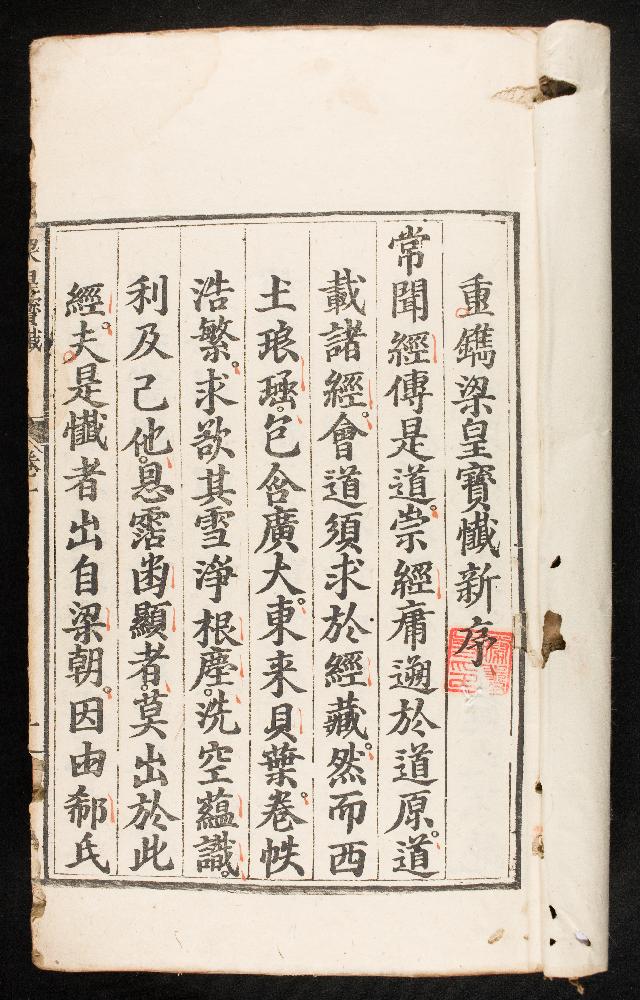 重鐫梁皇寶懺新序
常聞經傳是道。崇經庸遡於道原。道
載諸經。會道須求於經藏。然而西
土琅函。包含廣大。東来貝葉。卷帙
浩繁。求欲其雪淨根塵。洗空蘊識。
利及己他。恩霑幽顯者。莫出於此
經。夫是懺者出自梁朝。因由郗氏
梁皇寶懺
卷一